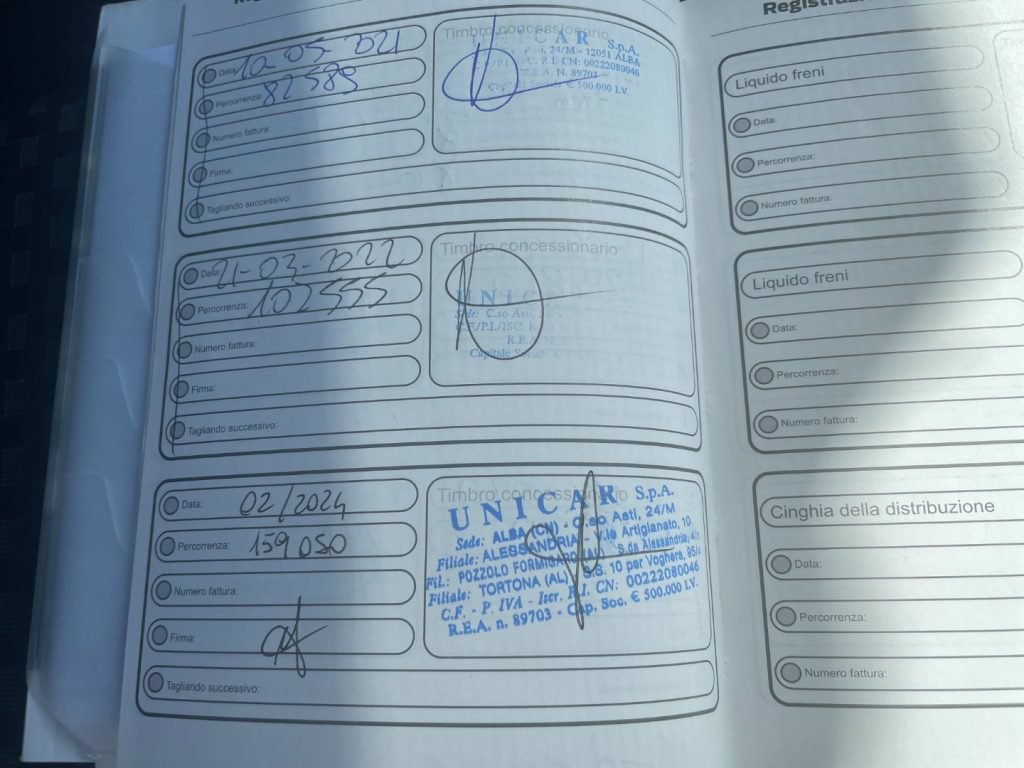 Registrazi
Timbro concessionario
Data: 10-05-2021
UNICAR S.p.A.
Asti, 24/M - 12051 ALBA
R.I. CN: 00222080046
Percorrenza: 82589
R.E.A. N. 89703
Capitale Sociale € 500.000 I.V.
Numero fattura:
Firma:
Tagliando successivo:
Data: 21-03-2022
Timbro concessionario
Percorrenza: 102555
UNIC
Sede: C.so Asti,
C.F./P.I./ISC. R.
R.E.A.
Capitale Social
Numero fattura:
Firma:
Tagliando successivo:
Data: 02/2024
Timbro concessionario
Percorrenza: 159050
UNICAR S.p.A.
Sede: ALBA (CN) - C.so Asti, 24/M
Filiale: ALESSANDRIA - V.le Artigianato, 10
Fil.: POZZOLO FORMIGARO (AL) S.da Alessandria,
Filiale: TORTONA (AL) S.S. 10 per Voghera, 85/
C.F. - P. IVA - Iscr. R.I. CN: 00222080046
R.E.A. n. 89703 - Cap. Soc. € 500.000 I.V.
Numero fattura:
Firma:
Tagliando successivo:
Liquido freni
Data:
Percorrenza:
Numero fattura:
Liquido freni
Data:
Percorrenza:
Numero fattura:
Cinghia della distribuzione
Data:
Percorrenza:
Numero fattura: